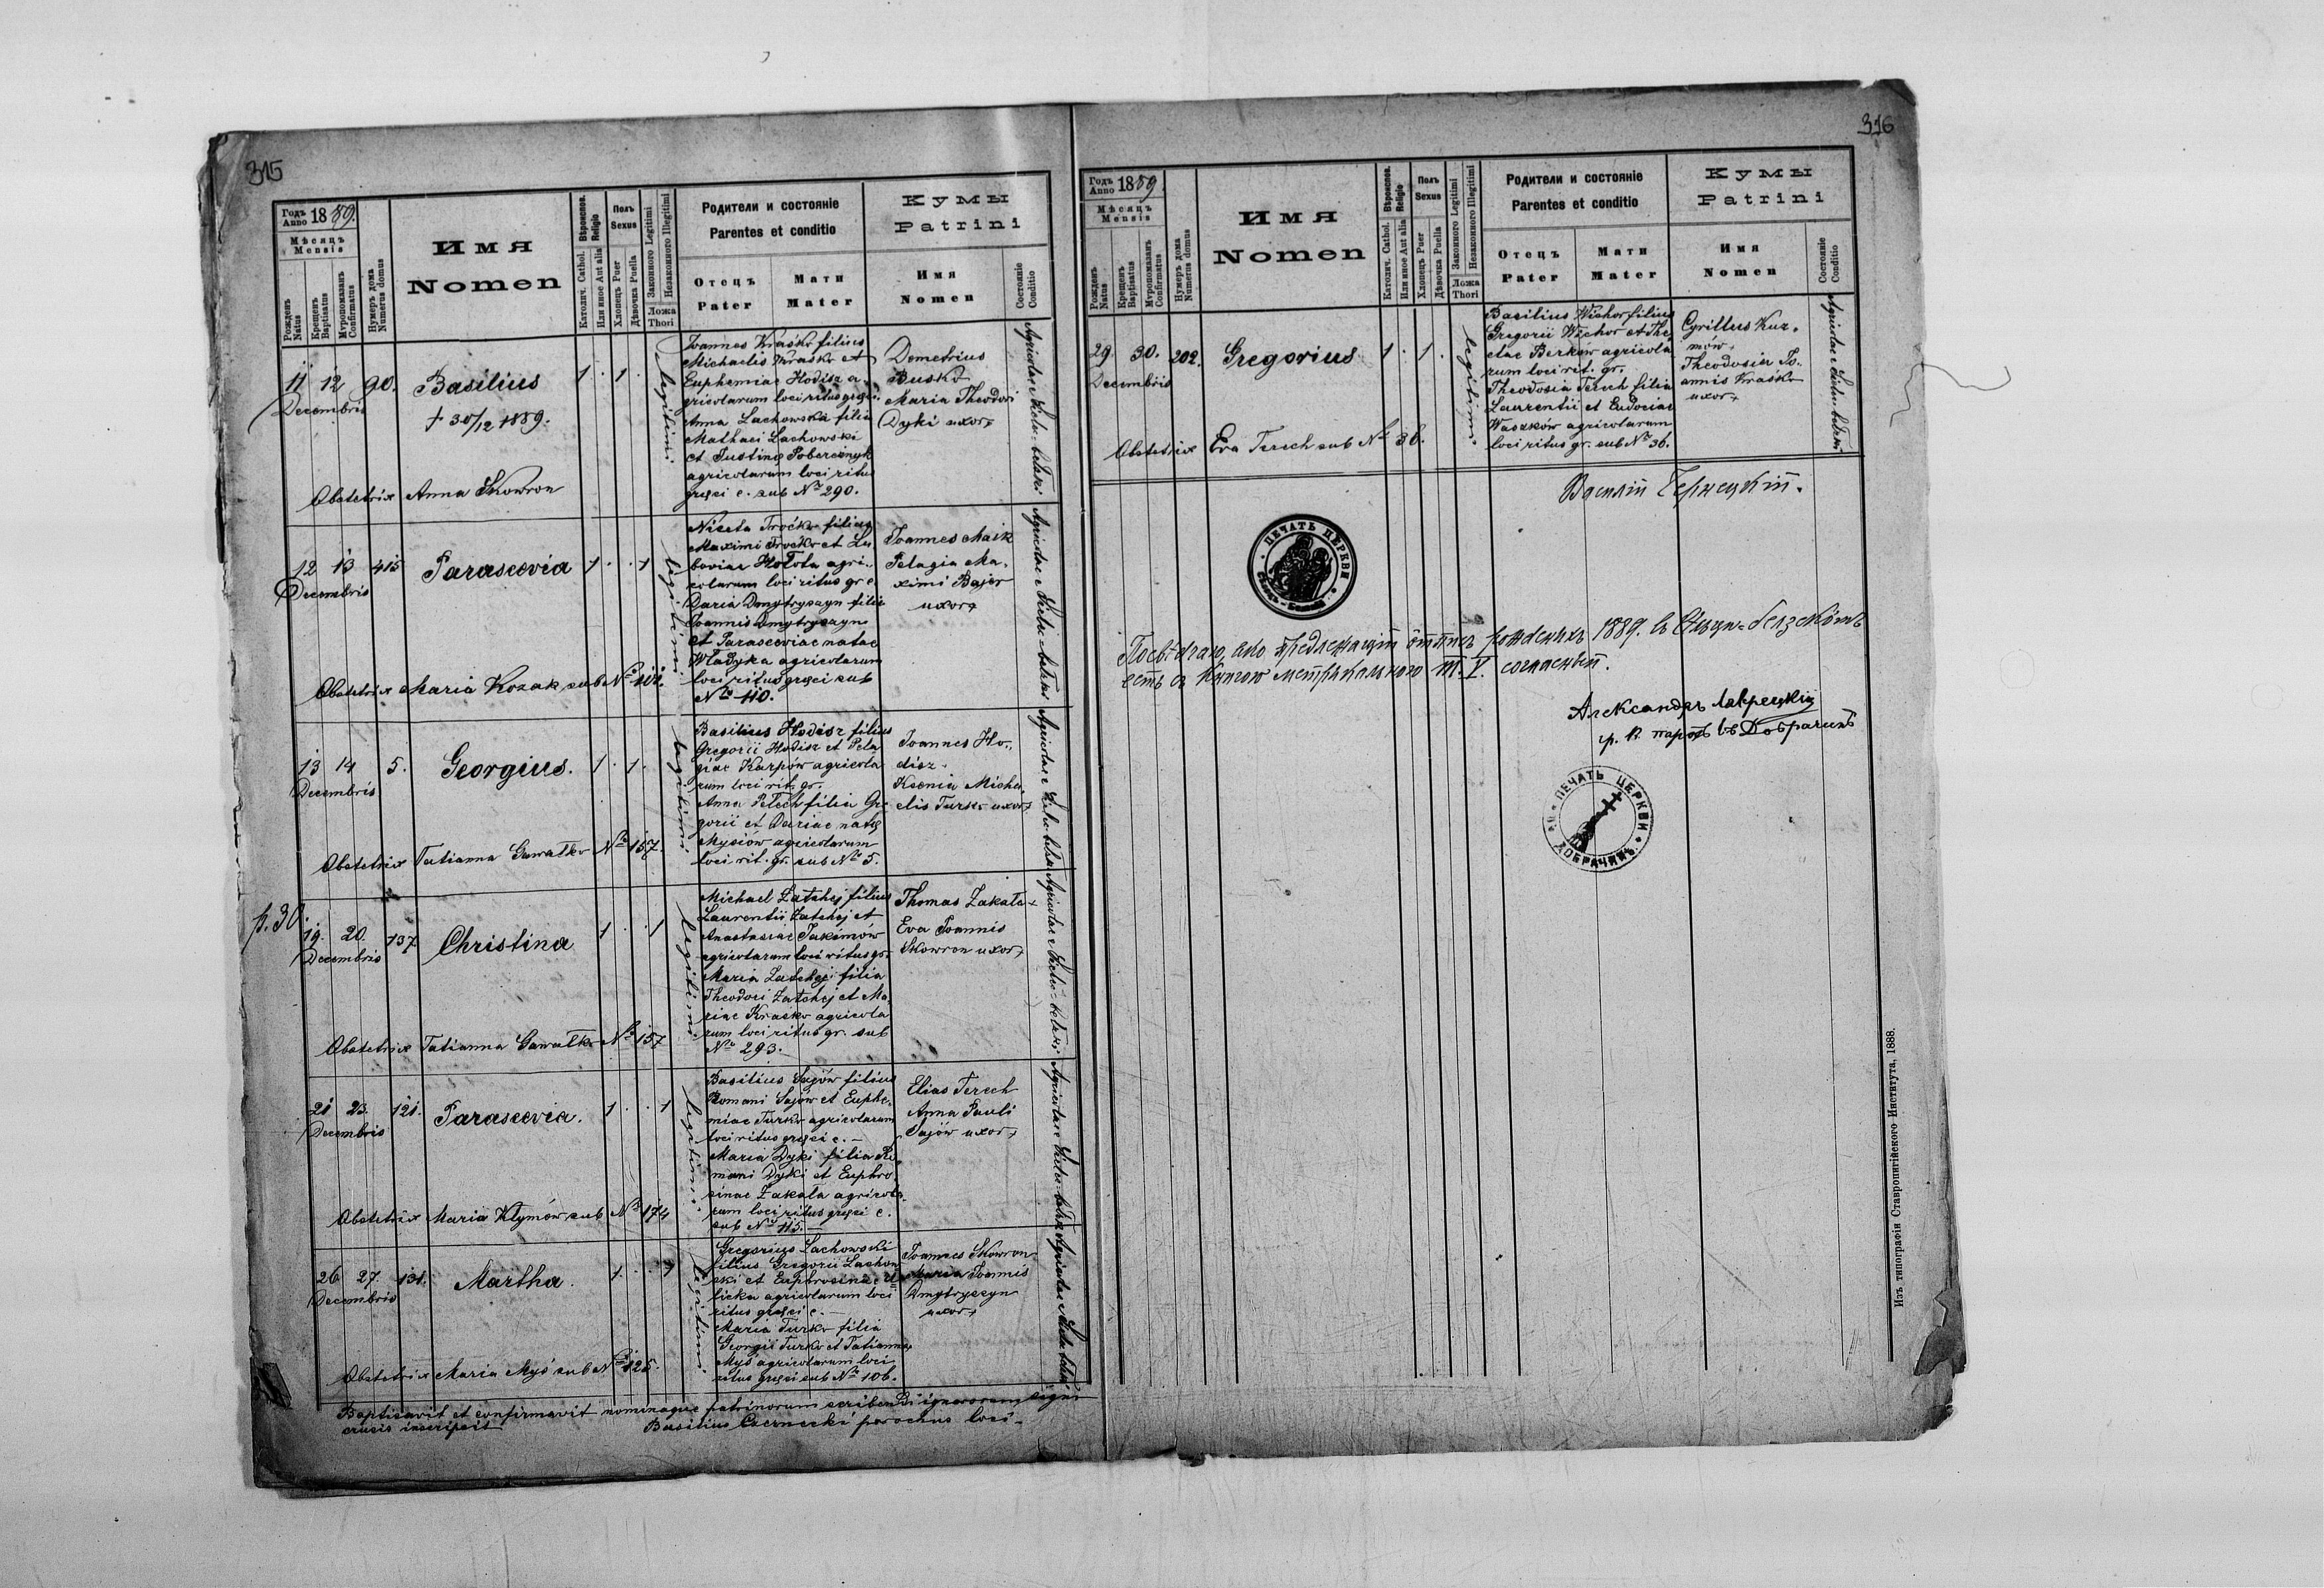 315
Годъ Anno 1889.
Мѣсяцъ
Mensis
Рожденъ Natus
Крещенъ Baptisatus
Мѵропомазанъ Confirmatus
Нумеръ дома Numerus domus
Имя
Nomen
Вѣроиспов. Religio
Католич. Cathol.
Или иное Aut alia
Полъ
Sexus
Хлопецъ Puer
Дѣвочка Puella
Законного Legitimi
Незаконного Illegitimi
Ложа
Thori
Родители и состояніе
Parentes et conditio
Отецъ
Pater
Мати
Mater
Кумы
Patrini
Имя
Nomen
Состояніе
Conditio
11 12 90. Basilius 1 . 1 .
Decembris
+ 30/12 1889.
legitimi
Joannes Krasko filius
Michaelis Krasko et
Euphemiae Hodisz a-
gricolarum loci ritus graeci.
Anna Lachowska filia
Mathaei Lachowski
et Justinae Pobereznyk
agricolarum loci ritus
graeci c. sub No 290.
Demetrius
Busko
Maria Theodori
Dyki uxor +
Obstetrix Anna Skowron
12 13 415 Parascevia 1 . . 1
Decembris
legitimi
Niceta Troćko filius
Maximi Troćko et Lu
boviae Hołota agri-
colarum loci ritus gr c.
Daria Dmytryszyn filia
Joannis Dmytryszyn
et Parasceviae natae
Władyka agricolarum
loci ritus graeci sub
No 110.
Joannes Maik
Pelagia Ma-
ximi Bajer
uxor +
Obstetrix Maria Kozak sub No
13 14 5. Georgius. 1 . 1 .
Decembris
legitimi
Basilius Hodisz filius
Gregorii Hodisz et Pela
giae Karpów agricola
rum loci rit. gr.
Anna Pelech filia Gre
gorii et Dariae natae
Mysiów agricolarum
loci rit. gr. sub No 5.
Joannes Ho-
disz.
Ksenia Micha-
elis Turko uxor +
Obstetrix Tatianna Gawałko No 157.
p. 30.
19. 20. 137 Christina 1 . . 1
Decembris
legitimi
Michael Zatchej filius
Laurentii Zatchej et
Anastasiae Jakimów
agricolarum loci ritus gr.
Maria Zatchej filia
Theodori Zatchej et Ma-
riae Krasko agricola
rum loci ritus gr. sub
No 293.
Thomas Zakała +
Eva Joannis
Skowron uxor +
Obstetrix Tatianna Gawałko No 157
21 23. 121. Parascevia. 1 . . 1
Decembris
legitimi
Basilius Sajów filius
Romani Sajów et Euphe-
miae Turko agricolarum
loci ritus graeci c. —
Maria Dyki filia Ro
mani Dyki et Euphro
sinae Zakała agricola-
rum loci ritus graeci c.
sub No 115. —
Elias Terech
Anna Pauli
Sajów uxor +
Obstetrix Maria Klymów sub No 174
26 27. 131. Martha. 1. . . 1
Decembris
legitimi
Gregorius Lachowski
filius Gregorii Lachow
ski et Euphrosinae
licka agricolarum loci
ritus graeci c. —
Maria Turko filia
Georgii Turko et Tatiannae
Myś agricolarum loci
ritus graeci sub No 106.
Joannes Skowron
Maria Joannis
Dmytryszyn
uxor +
Obstetrix Maria Myś sub No 125.
Baptisavit et confirmavit nominaque patrinorum scribendi ignarorum signo
crucis inscripsit Basilius Czernecki parochus loci —
316
Годъ Anno 1889.
Мѣсяцъ
Mensis
Рожденъ Natus
Крещенъ Baptisatus
Мѵропомазанъ Confirmatus
Нумеръ дома Numerus domus
Имя
Nomen
Вѣроиспов. Religio
Католич. Cathol.
Или иное Aut alia
Полъ
Sexus
Хлопецъ Puer
Дѣвочка Puella
Законного Legitimi
Незаконного Illegitimi
Ложа
Thori
Родители и состояніе
Parentes et conditio
Отецъ
Pater
Мати
Mater
Кумы
Patrini
Имя
Nomen
Состояніе
Conditio
29. 30. 202. Gregorius 1 . 1 .
Decembris
legitimi
Basilius Wichor filius
Gregorii Wichor et The
clae Berków agricola
rum loci rit. gr.
Theodosia Terech filia
Laurentii et Eudociae
Waszków agricolarum
loci ritus gr. sub No 36.
Cyrillus Kuz-
mów.
Theodosia Jo-
annis Krasko
uxor +
Obstetrix Eva Terech sub No 36.
Василій Чернецкій.
ПЕЧАТЬ ЦЕРКВИ
Посвѣдчаю, яко предлежащій отписъ рожденыхъ 1889. въ Сѣлци-белзскомъ
есть съ Книгою метрикальною т. V. согласный.
Александръ Лаврецкій
гр. к. парохъ въ Добрачинѣ
ПЕЧАТЬ ЦЕРКВИ
ДОБРАЧИНЪ.
Изъ типографіи Ставропигійского Института, 1888.